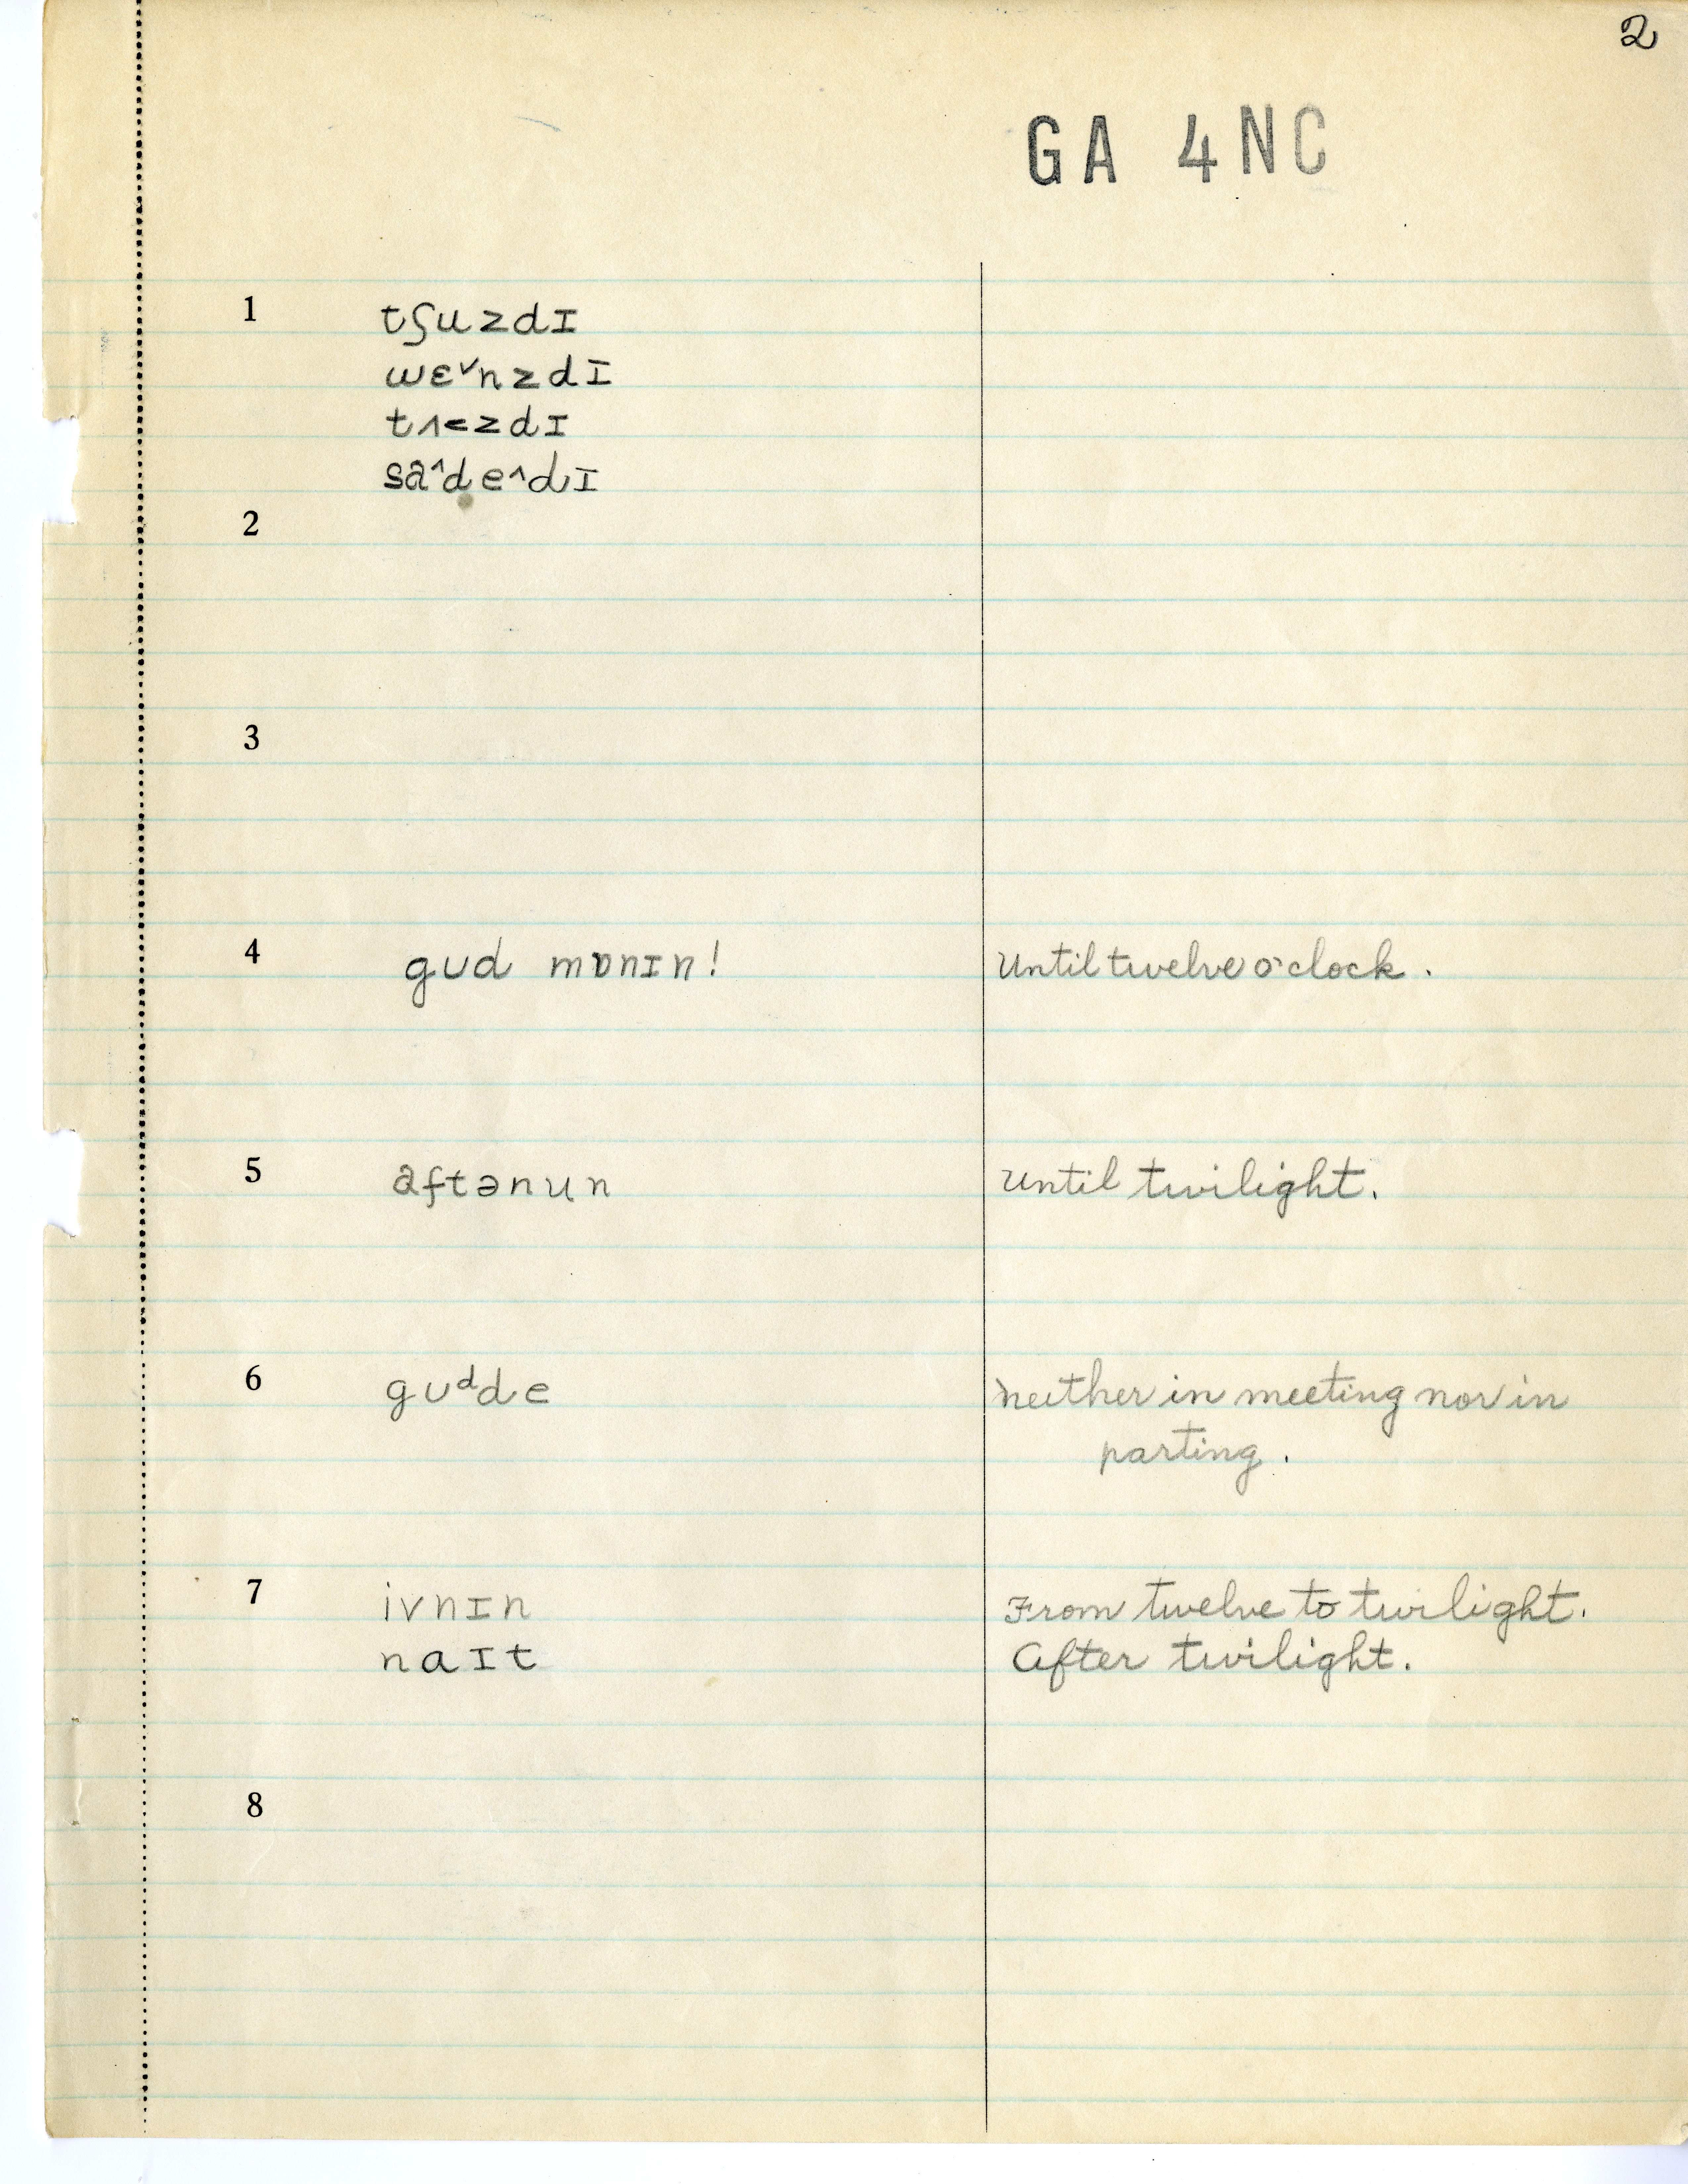 2
GA 4NC
1 tʃuzdɪ
wɛ˅nzdɪ
tʌ<zdɪ
sa^de^dɪ
2
3
4 gud mɒnɪn! Until twelve o'clock.
5 aftənun Until twilight.
6 guᵈde Neither in meeting nor in
parting.
7 ivnɪn From twelve to twilight.
naɪt After twilight.
8